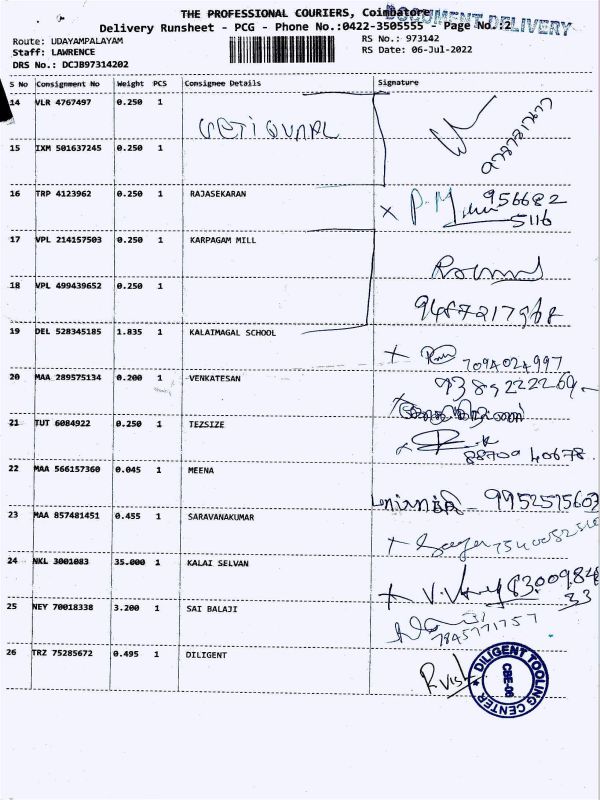 THE PROFESSIONAL COURIERS, Coimbatore
DOCUMENT DELIVERY
Delivery Runsheet - PCG - Phone No.:0422-3505555 - Page No.:2
Route: UDAYAMPALAYAM
RS No.: 973142
Staff: LAWRENCE
RS Date: 06-Jul-2022
DRS No.: DCJB97314202
S No Consignment No Weight PCS Consignee Details Signature
14 VLR 4767497 0.250 1
15 IXM 501637245 0.250 1
16 TRP 4123962 0.250 1 RAJASEKARAN
956682
5116
17 VPL 214157503 0.250 1 KARPAGAM MILL
18 VPL 499439652 0.250 1
19 DEL 528345185 1.835 1 KALAIMAGAL SCHOOL
7094024997
20 MAA 289575134 0.200 1 VENKATESAN
9389222269
21 TUT 6084922 0.250 1 TEZSIZE
88709 40678
22 MAA 566157360 0.045 1 MEENA
9952575607
23 MAA 857481451 0.455 1 SARAVANAKUMAR
24 NKL 3001083 35.000 1 KALAI SELVAN
8300984
33
25 NEY 70018338 3.200 1 SAI BALAJI
7845771757
26 TRZ 75285672 0.495 1 DILIGENT
DILIGENT TOOLING CENTER
CBE-06